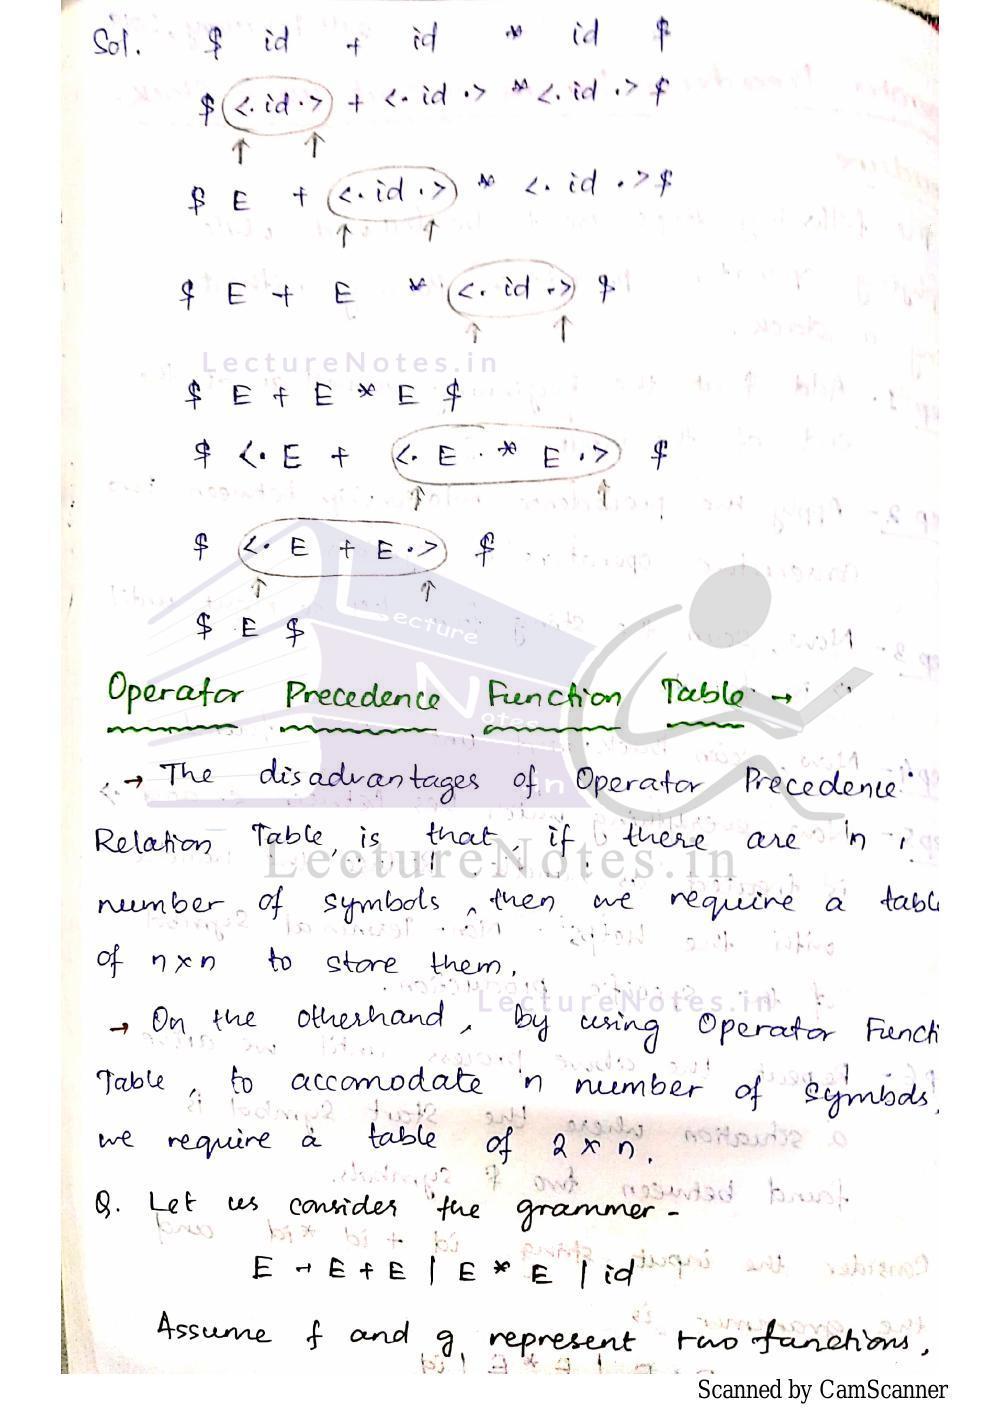 Sol. $ id + id * id $
$ <. id .> + <. id .> * <. id .> $
$ E + <. id .> * <. id .> $
$ E + E * <. id .> $
LectureNotes.in
$ E + E * E $
$ <. E + <. E . * E .> $
$ <. E + E .> $
$ E $
Operator Precedence Function Table →
→ The disadvantages of Operator Precedence
Relation Table, is that, if there are 'n'
number of symbols, then we require a tabl
of n×n to store them.
LectureNotes.in
→ On the otherhand, by using Operator Functi
Table, to accomodate 'n number of symbols,
we require a table of 2 × n.
Q. Let us consider the grammer -
E → E + E | E * E | id
Assume f and g represent two functions,
Scanned by CamScanner